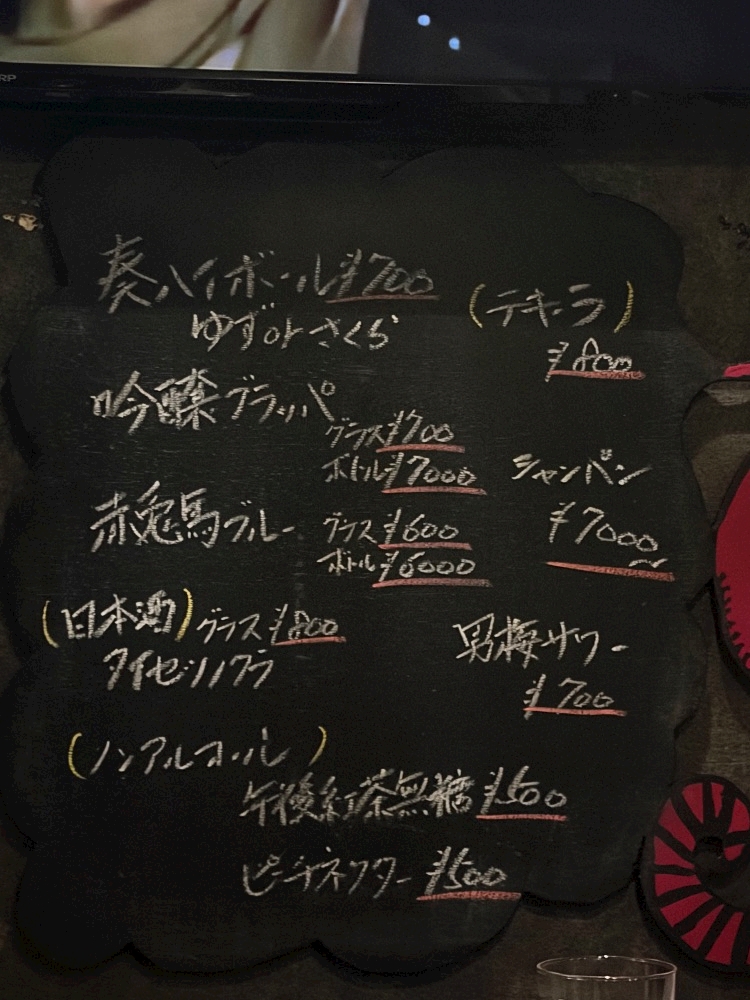 RP
奏ハイボール ¥700
ゆず or さくら
(テキーラ)
¥800
吟醸グラッパ
グラス ¥700
ボトル ¥7000
シャンパン
¥7000〜
赤兎馬ブルー
グラス ¥600
ボトル ¥6000
(日本酒) グラス ¥800
タイセツノクラ
男梅サワー
¥700
(ノンアルコール)
午後紅茶無糖 ¥500
ピーチネクター ¥500